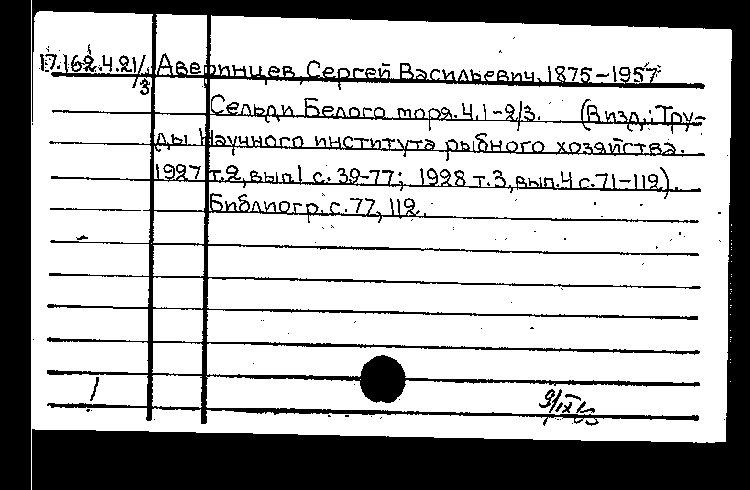 17.162.4.21/3 Аверинцев, Сергей Васильевич. 1875-1957
Сельди Белого моря. Ч.1-2/3. (В изд.: Тру-
ды Научного института рыбного хозяйства.
1927 т.2, вып.1 с. 39-77; 1928 т.3, вып.4 с.71-112).
Библиогр. с. 77, 112.